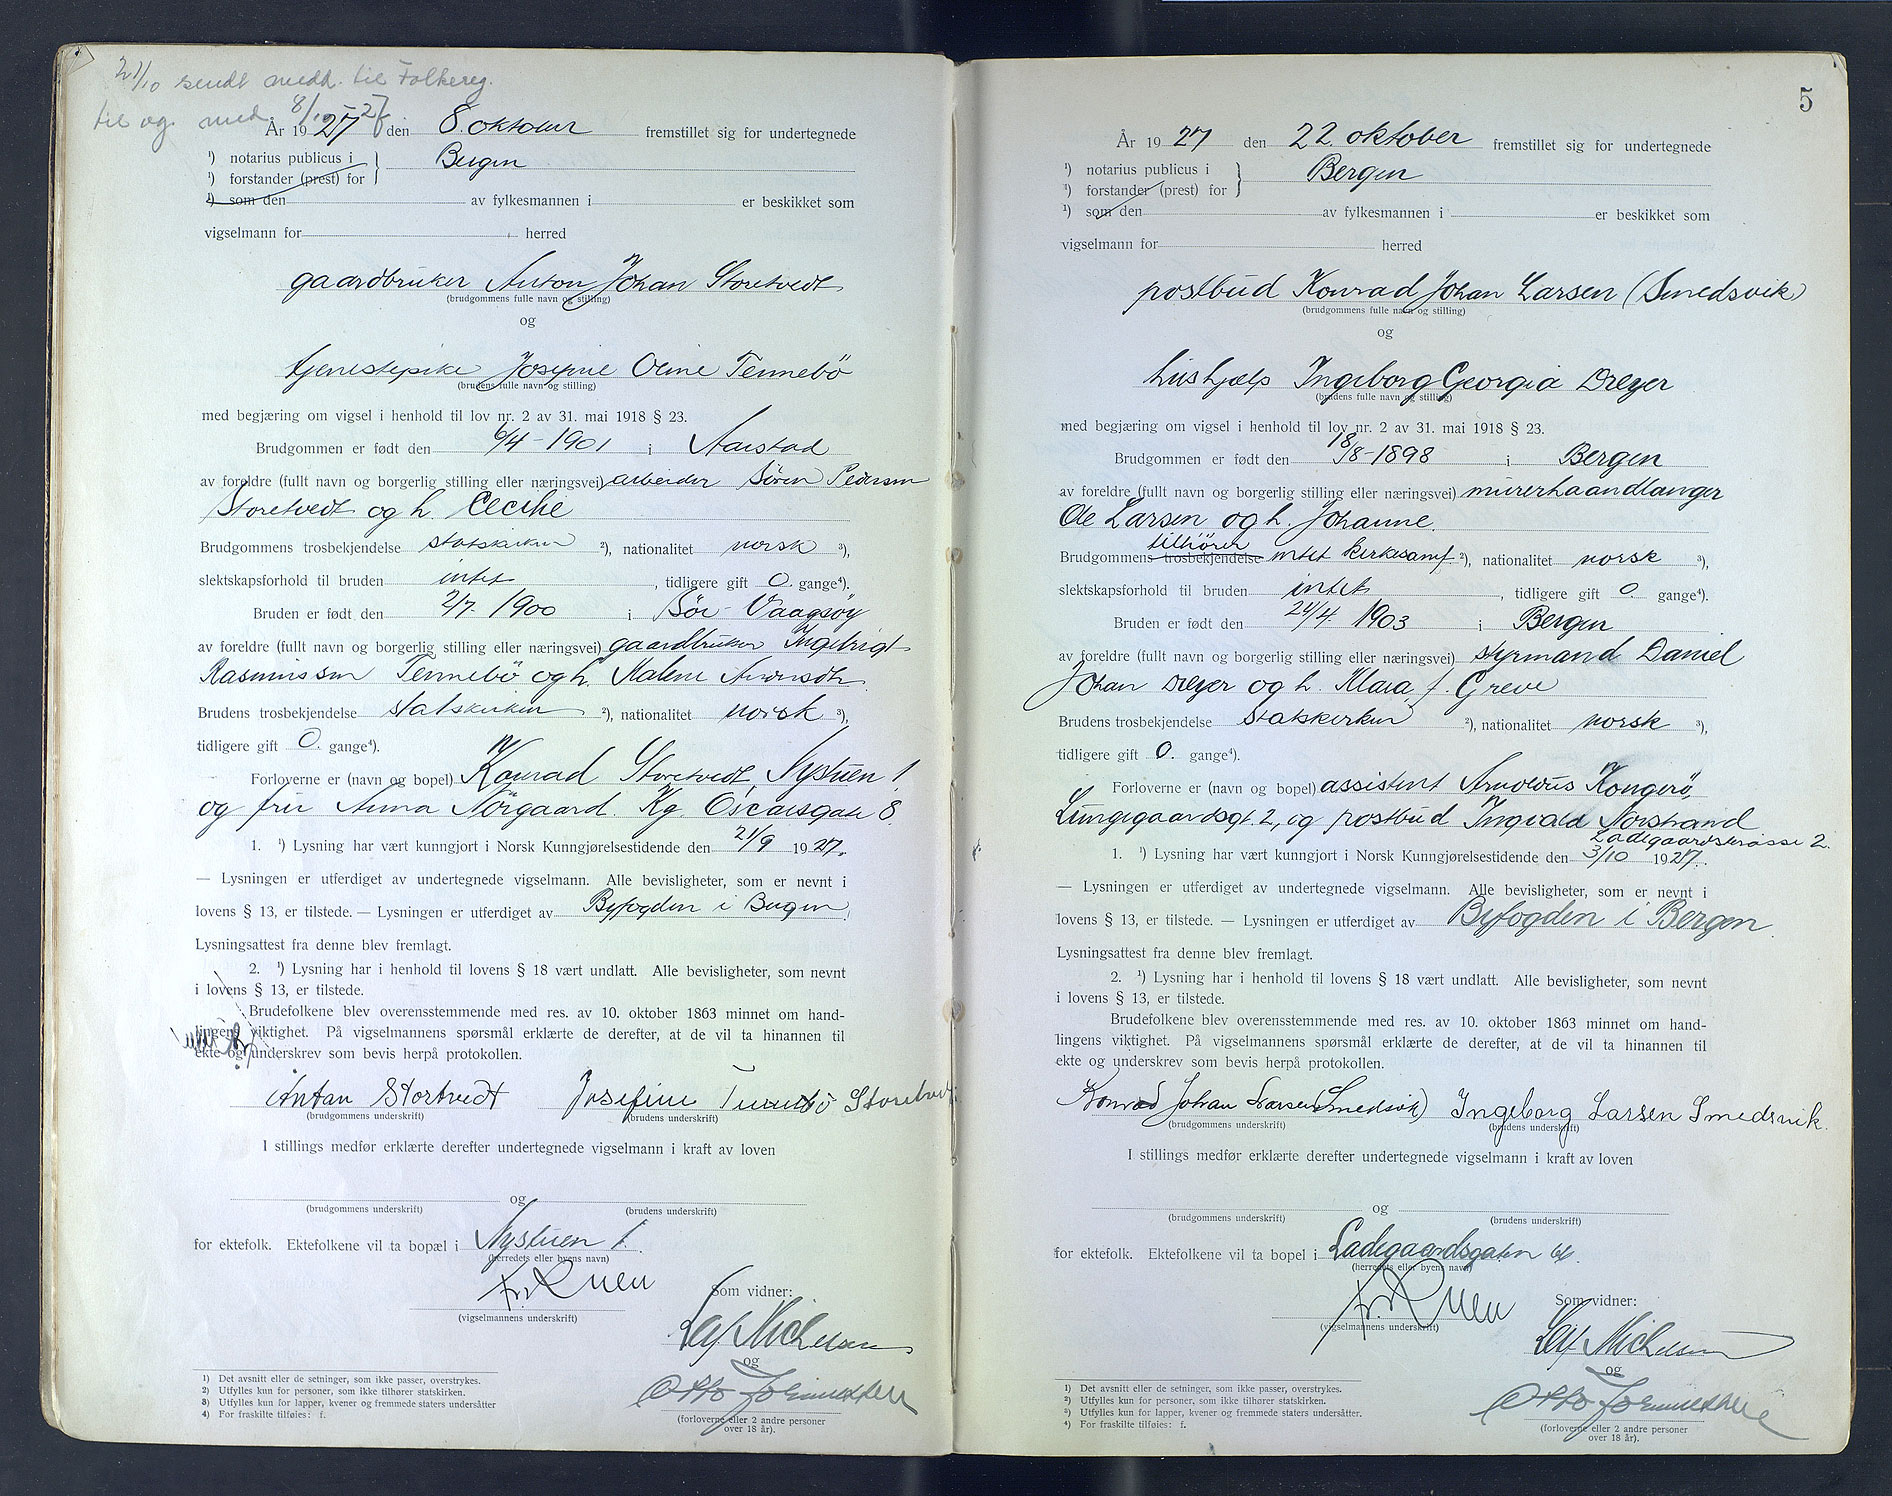 21/10 sendt medd. til Folkereg.
til og med 8/10 27
År 1927 den 8. oktober fremstillet sig for undertegnede
¹) notarius publicus i } Bergen
¹) forstander (prest) for
¹) som den av fylkesmannen i er beskikket som
vigselmann for herred
gaardbruker Anton Johan Storetvedt
(brudgommens fulle navn og stilling)
og
tjenestepike Josefine Oline Tennebö
(brudens fulle navn og stilling)
med begjæring om vigsel i henhold til lov nr. 2 av 31. mai 1918 § 23.
Brudgommen er født den 6/4-1901 i Aarstad
av foreldre (fullt navn og borgerlig stilling eller næringsvei) arbeider Sören Pedersen
Storetvedt og h. Cecilie
Brudgommens trosbekjendelse statskirken ²), nationalitet norsk ³),
slektskapsforhold til bruden intet, tidligere gift 0 gange⁴).
Bruden er født den 2/7 1900 i Sör-Vaagsöy
av foreldre (fullt navn og borgerlig stilling eller næringsvei) gaardbruker Ingebrigt
Rasmussen Tennebö og h. Malene Andersdtr.
Brudens trosbekjendelse statskirken ²), nationalitet norsk ³),
tidligere gift 0. gange⁴).
Forloverne er (navn og bopel) Konrad Storetvedt, Nystuen 1
og fru Anna Nörgaard. Kg. Oscarsgate 8
1. ¹) Lysning har vært kunngjort i Norsk Kunngjørelsestidende den 21/9 1927.
— Lysningen er utferdiget av undertegnede vigselmann. Alle bevisligheter, som er nevnt i
lovens § 13, er tilstede. — Lysningen er utferdiget av Byfogden i Bergen
Lysningsattest fra denne blev fremlagt.
2. ¹) Lysning har i henhold til lovens § 18 vært undlatt. Alle bevisligheter, som nevnt
i lovens § 13, er tilstede.
Brudefolkene blev overensstemmende med res. av 10. oktober 1863 minnet om hand-
lingens viktighet. På vigselmannens spørsmål erklærte de derefter, at de vil ta hinannen til
ekte og underskrev som bevis herpå protokollen.
Anton Stortvedt Josefine Tennebö Storetvedt
(brudgommens underskrift) (brudens underskrift)
I stillings medfør erklærte derefter undertegnede vigselmann i kraft av loven
og
(brudgommens underskrift) (brudens underskrift)
for ektefolk. Ektefolkene vil ta bopæl i Nystuen 1.
(herredets eller byens navn)
(vigselmannens underskrift)
Som vidner:
Leif Michelsen
og
Otto Johannessen
(forloverne eller 2 andre personer
over 18 år).
1) Det avsnitt eller de setninger, som ikke passer, overstrykes.
2) Utfylles kun for personer, som ikke tilhører statskirken.
3) Utfylles kun for lapper, kvener og fremmede staters undersåtter
4) For fraskilte tilføies: f.
5
År 1927 den 22. oktober fremstillet sig for undertegnede
¹) notarius publicus i } Bergen
¹) forstander (prest) for
¹) som den av fylkesmannen i er beskikket som
vigselmann for herred
postbud Konrad Johan Larsen (Smedsvik)
(brudgommens fulle navn og stilling)
og
hushjælp Ingeborg Georgia Dreyer
(brudens fulle navn og stilling)
med begjæring om vigsel i henhold til lov nr. 2 av 31. mai 1918 § 23.
Brudgommen er født den 18/8-1898 i Bergen
av foreldre (fullt navn og borgerlig stilling eller næringsvei) murerhaandlanger
Ole Larsen og h. Johanne.
tilhører
Brudgommens trosbekjendelse intet kirkesamf ²), nationalitet norsk ³),
slektskapsforhold til bruden intet, tidligere gift 0. gange⁴).
Bruden er født den 24/4 1903 i Bergen
av foreldre (fullt navn og borgerlig stilling eller næringsvei) styrmand Daniel
Johan Dreyer og h. Klara, f. Greve
Brudens trosbekjendelse Statskirken ²), nationalitet norsk ³),
tidligere gift 0. gange⁴).
Forloverne er (navn og bopel) assistent Arnoldus Kongerö,
Lungegaardsgt. 2, og postbud Ingvald Norstrand
Ladegaardsterasse 2.
1. ¹) Lysning har vært kunngjort i Norsk Kunngjørelsestidende den 3/10 1927.
— Lysningen er utferdiget av undertegnede vigselmann. Alle bevisligheter, som er nevnt i
lovens § 13, er tilstede. — Lysningen er utferdiget av Byfogden i Bergen
Lysningsattest fra denne blev fremlagt.
2. ¹) Lysning har i henhold til lovens § 18 vært undlatt. Alle bevisligheter, som nevnt
i lovens § 13, er tilstede.
Brudefolkene blev overensstemmende med res. av 10. oktober 1863 minnet om hand-
lingens viktighet. På vigselmannens spørsmål erklærte de derefter, at de vil ta hinannen til
ekte og underskrev som bevis herpå protokollen.
Konrad Johan Larsen (Smedsvik) Ingeborg Larsen Smedsvik.
(brudgommens underskrift) (brudens underskrift)
I stillings medfør erklærte derefter undertegnede vigselmann i kraft av loven
og
(brudgommens underskrift) (brudens underskrift)
for ektefolk. Ektefolkene vil ta bopel i Ladegaardsgaten
(herredets eller byens navn)
(vigselmannens underskrift)
Som vidner:
Leif Michelsen
og
Otto Johannessen
(forloverne eller 2 andre personer
over 18 år).
1) Det avsnitt eller de setninger, som ikke passer, overstrykes.
2) Utfylles kun for personer, som ikke tilhører statskirken.
3) Utfylles kun for lapper, kvener og fremmede staters undersåtter.
4) For fraskilte tilføies: f.